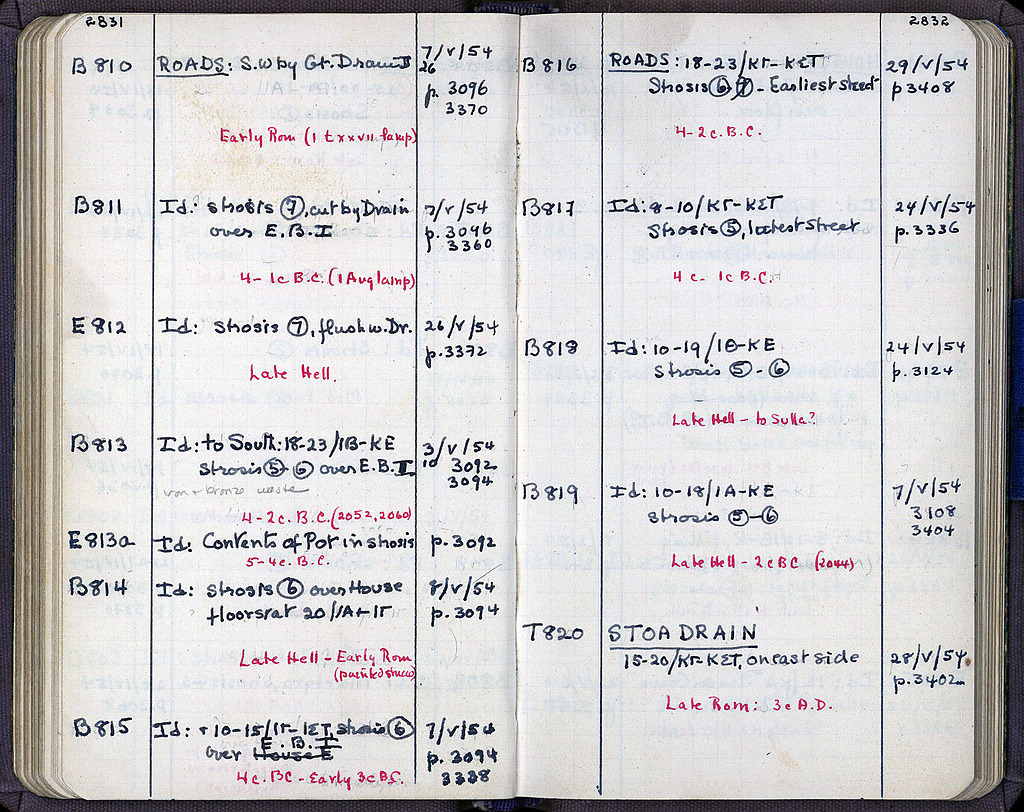 2831
B 810 ROADS: S.W by Gt. Drain 7/V/54
26
p. 3096
3370
Early Rom (1 t xxvii lamp)
B811 Id: strosis ⑦, cut by Drain 7/V/54
over E.B.II p. 3046
3360
4- 1c B.C. (1 Aug lamp)
E 812 Id: strosis ⑦, flush w. Dr. 26/V/54
p. 3372
Late Hell.
B813 Id: to South: 18-23/IB-KE 3/V/54
strosis ⑤-⑥ over E.B.II 10 3092
iron + bronze waste 3094
4-2c. B.C. (2052, 2060)
E813a Id: Contents of Pot in strosis p. 3092
5-4c. B.C.
B814 Id: strosis ⑥ over House 8/V/54
floors at 20/IA-IΓ p. 3094
Late Hell - Early Rom
(painted stucco)
B815 Id: + 10-15/IΓ-IET, strosis ⑥ 7/V/54
E. B. I
over House E p. 3094
3338
4c. BC - Early 3c BC.
2832
B816 ROADS: 18-23/KΓ-KET 29/V/54
Strosis ⑥ ⑦ - Earliest street p 3408
4-2c. B.C.
B817 Id: 8-10/KΓ-KET 24/V/54
strosis ⑤, latest street p. 3336
4c- 1c B.C.
B818 Id: 10-19/IB-KE 24/V/54
strosis ⑤-⑥ p. 3124
Late Hell - to Sulla?
B819 Id: 10-18/IA-KE 7/V/54
strosis ⑤-⑥ 3108
3404
Late Hell - 2c BC. (2044)
T820 STOA DRAIN
15-20/KΓ-KET, on east side 28/V/54
p. 3402
Late Rom: 3c A.D.